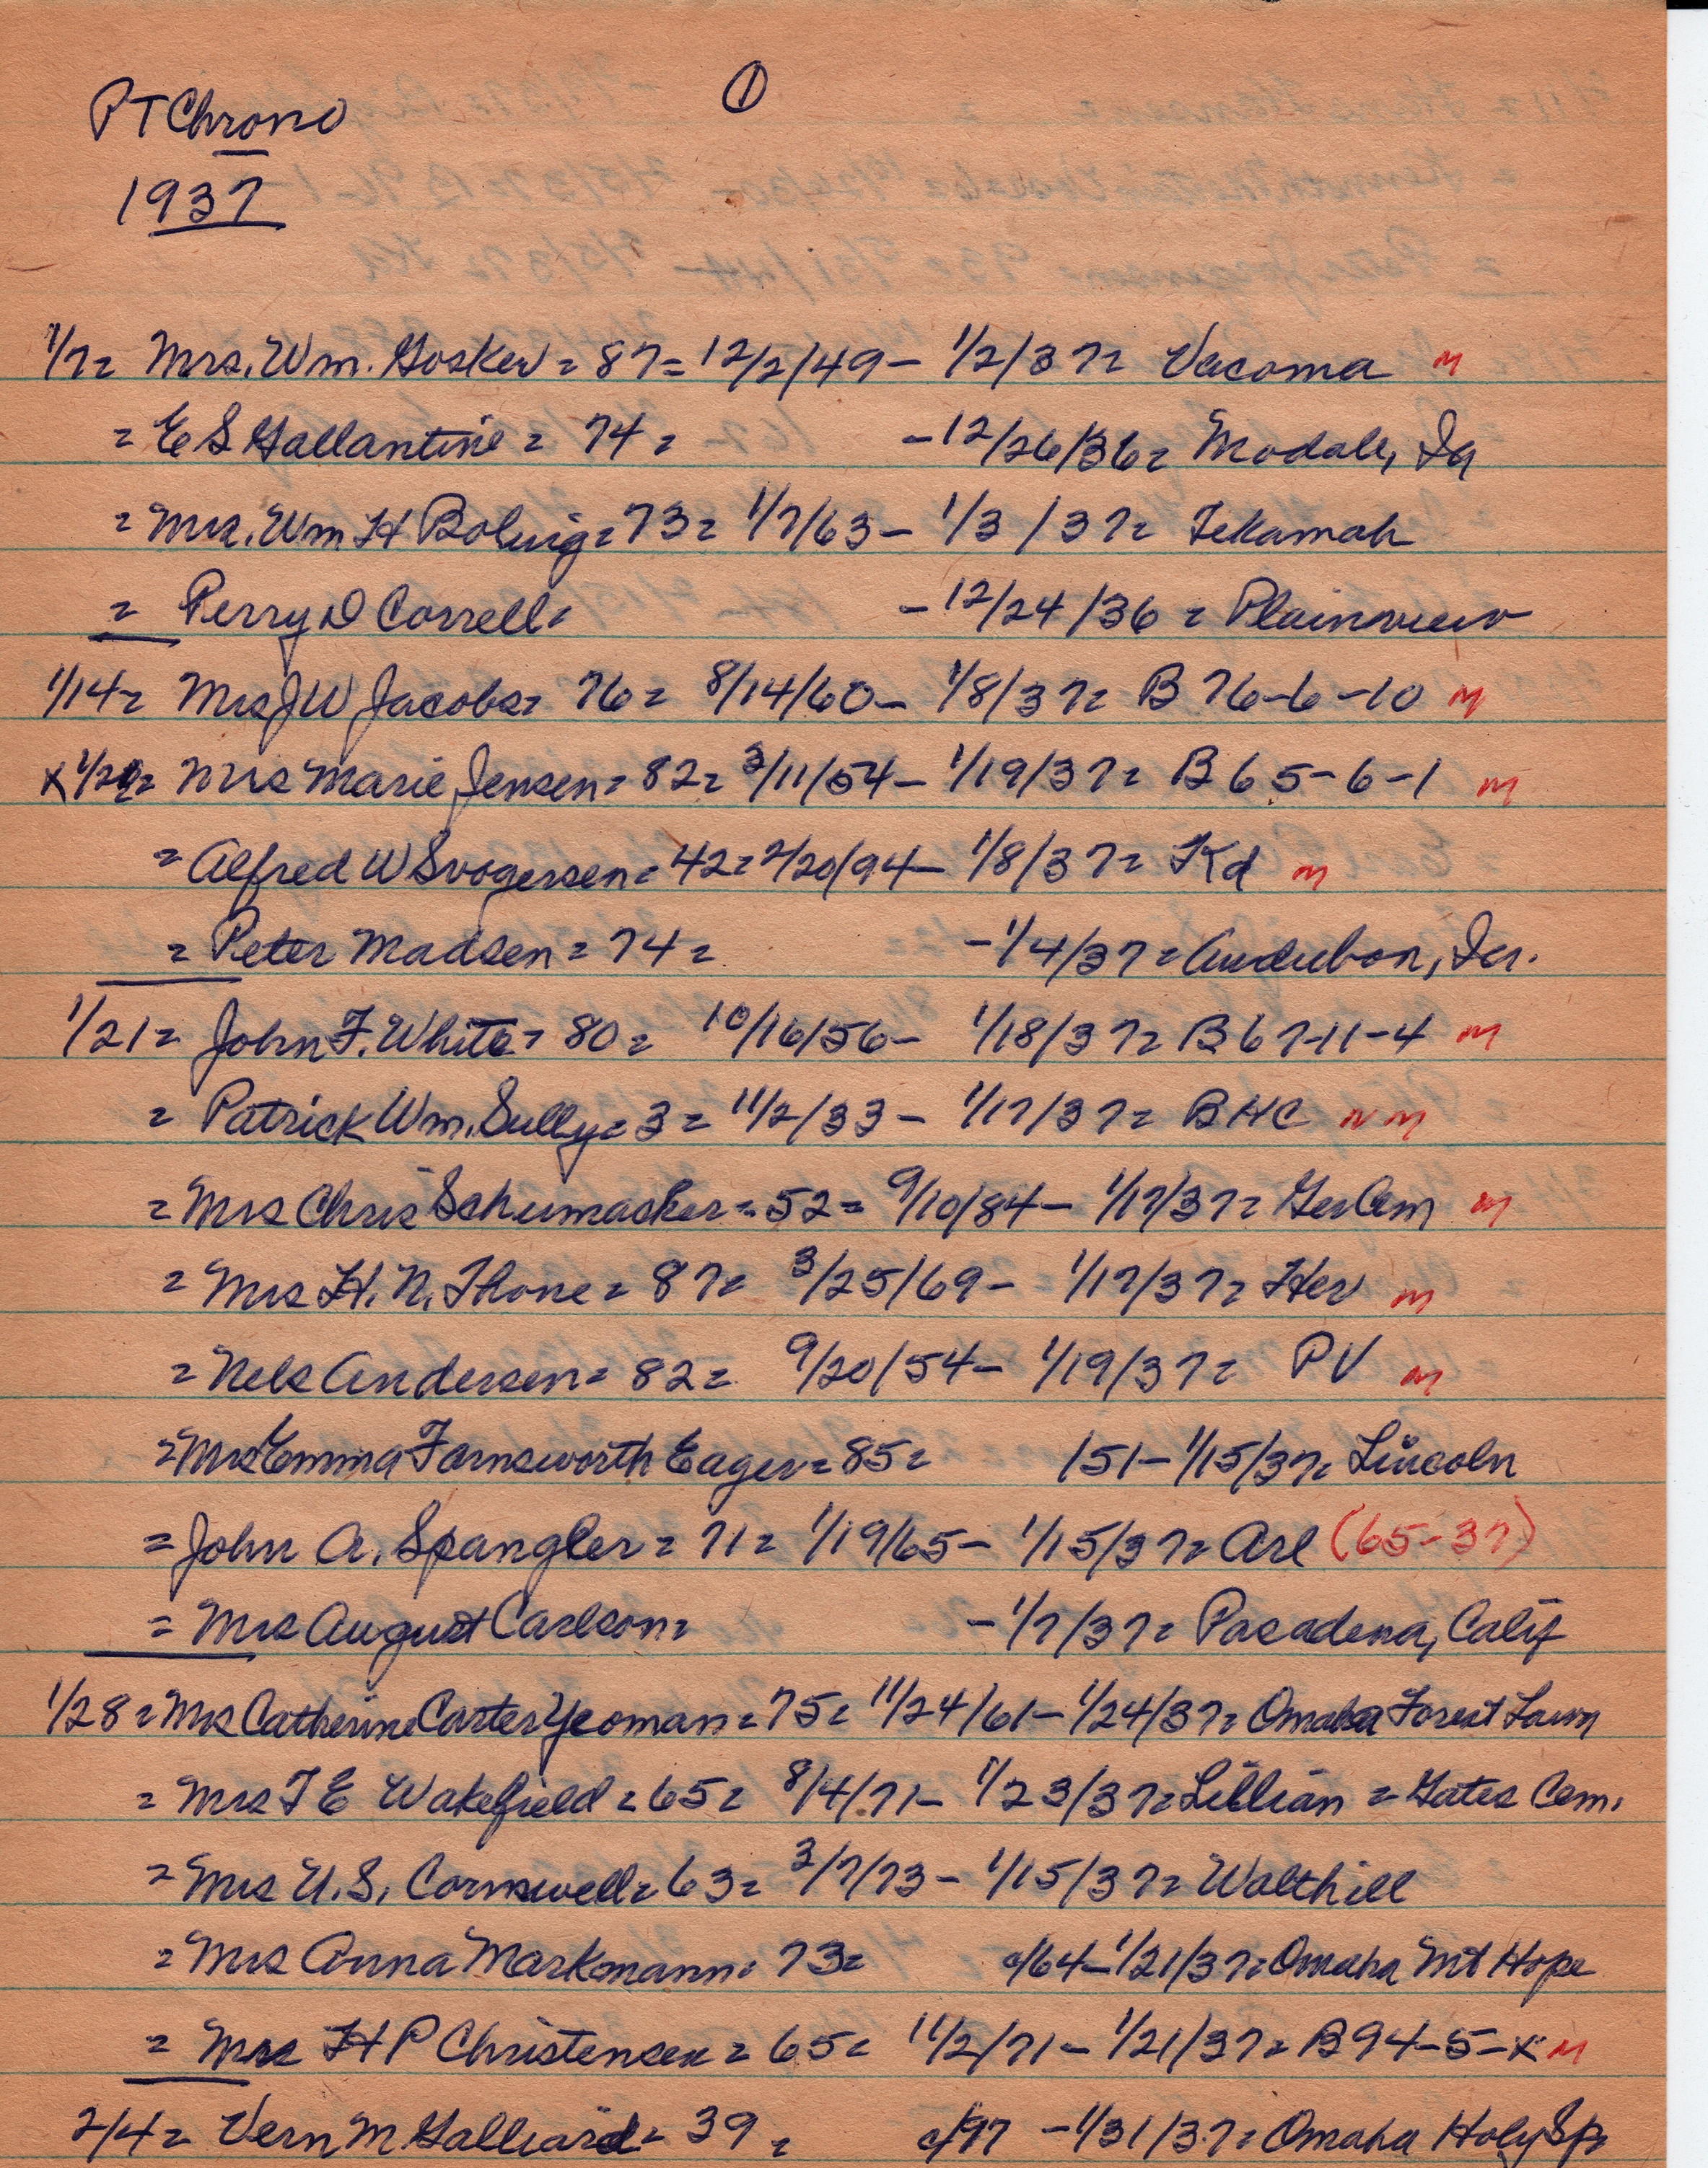 ①
PT Chrono
1937
1/7= Mrs. Wm. Gosker = 87= 12/2/49- 1/2/37= Vacoma m
= E S Gallantine = 74= -12/26/36= Modale, Ia
= Mrs. Wm H Bolwig= 73= 1/7/63- 1/3/37= Tekamah
= Perry D Correll= -12/24/36 = Plainview
1/14= Mrs J W Jacobs= 76= 8/14/60- 1/8/37= B 76-6-10 m
x 1/21= Mrs Marie Jensen= 82= 3/11/54- 1/19/37= B 65-6-1 m
= Alfred W Svogersen= 42= 2/20/94- 1/8/37= Kd m
= Peter Madsen = 74= -1/4/37= Audubon, Ia.
1/21= John F. White= 80= 10/16/56- 1/18/37= B 67-11-4 m
= Patrick Wm. Sully= 3= 11/2/33- 1/17/37= BHC N m
= Mrs Chris Schumacker= 52= 9/10/84- 1/17/37= Ger Cem m
= Mrs H. N. Thone = 87= 3/25/69- 1/17/37= Her m
= Nels Andersen= 82= 9/20/54- 1/19/37= PV m
= Mrs Emma Farnsworth Eager= 85= /51- 1/15/37= Lincoln
= John A. Spangler= 71= 1/19/65- 1/15/37= Arl (65-37)
= Mrs August Carlson= -1/7/37= Pasadena, Calif
1/28= Mrs Catherine Carter Yeoman= 75= 11/24/61- 1/24/37= Omaha Forest Lawn
= Mrs T E Wakefield= 65= 8/4/71- 1/23/37= Lillian = Gates Cem.
= Mrs U.S. Cornwell= 63= 3/7/73- 1/15/37= Walthill
= Mrs Anna Markmann= 73= c/64- 1/21/37= Omaha Mt Hope
= Mrs H P Christensen= 65= 11/2/71- 1/21/37= B 94-5-x m
2/4= Vern M Galliard= 39= c/97 -1/31/37= Omaha Holy Sp